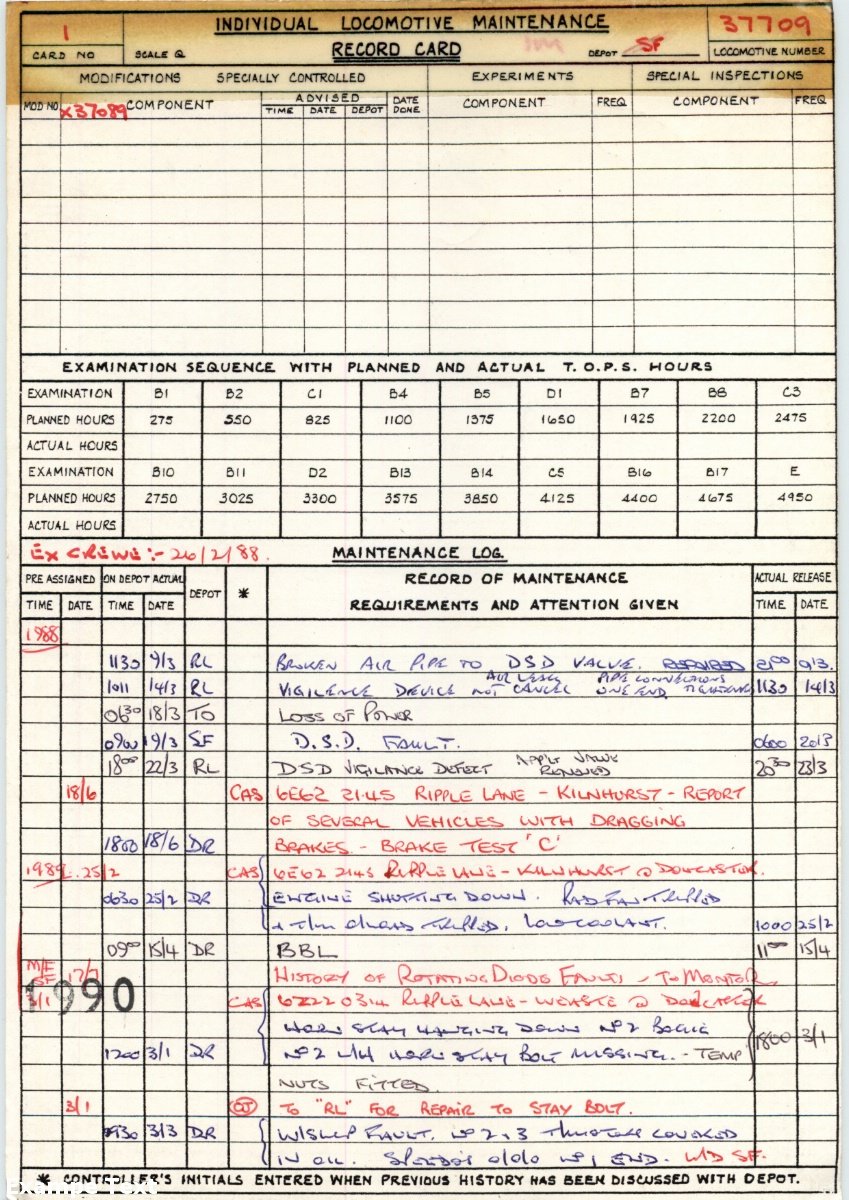 1 INDIVIDUAL LOCOMOTIVE MAINTENANCE 37709
CARD NO SCALE Q RECORD CARD DEPOT SF LOCOMOTIVE NUMBER
MODIFICATIONS SPECIALLY CONTROLLED EXPERIMENTS SPECIAL INSPECTIONS
MOD NO X37089 COMPONENT ADVISED DATE DONE COMPONENT FREQ COMPONENT FREQ
TIME DATE DEPOT
EXAMINATION SEQUENCE WITH PLANNED AND ACTUAL T.O.P.S. HOURS
EXAMINATION B1 B2 C1 B4 B5 D1 B7 B8 C3
PLANNED HOURS 275 550 825 1100 1375 1650 1925 2200 2475
ACTUAL HOURS
EXAMINATION B10 B11 D2 B13 B14 C5 B16 B17 E
PLANNED HOURS 2750 3025 3300 3575 3850 4125 4400 4675 4950
ACTUAL HOURS
EX CREWE :- 26/2/88. MAINTENANCE LOG.
PRE ASSIGNED ON DEPOT ACTUAL DEPOT * RECORD OF MAINTENANCE ACTUAL RELEASE
TIME DATE TIME DATE REQUIREMENTS AND ATTENTION GIVEN TIME DATE
1988
1130 9/3 RL BROKEN AIR PIPE TO DSD VALVE. REPAIRED 2100 9/3.
AIR LEAKS PIPE CONNECTIONS
1011 14/3 RL VIGILENCE DEVICE NOT CANCEL ONE END. TIGHTENED 1130 14/3
0630 18/3 TO LOSS OF POWER
0900 19/3 SF D.S.D. FAULT. 0600 20/3
1800 22/3 RL DSD VIGILANCE DEFECT APPLY VALVE RENEWED 2030 23/3
18/6 CAS 6E62 21.45 RIPPLE LANE - KILNHURST - REPORT
OF SEVERAL VEHICLES WITH DRAGGING
1800 18/6 DR BRAKES - BRAKE TEST 'C'
1989 25/2 CAS 6E62 2145 RIPPLE LANE - KILNHURST @ DONCASTER.
0630 25/2 DR ENGINE SHUTTING DOWN. RAD FAN TRIPPED
TRIPPED, LOW COOLANT. 1000 25/2
0900 15/4 DR BBL 1100 15/4
M/E SF 17/7 HISTORY OF ROTATING DIODE FAULTS - TO MONITOR
1990
3/1 CAS 6Z22 0314 RIPPLE LANE - WEASTE @ DONCASTER
HORN STAY HANGING DOWN Nº2 BOGIE
1200 3/1 DR Nº2 L/H HORN STAY BOLT MISSING. - TEMP 1800 3/1
NUTS FITTED.
3/1 TO "RL" FOR REPAIR TO STAY BOLT.
0930 3/3 DR W/SLIP FAULT. Nº 2+3 COVERED
IN OIL. SPEEDO O/O/O Nº1 END. W/D SF.
* CONTROLLER'S INITIALS ENTERED WHEN PREVIOUS HISTORY HAS BEEN DISCUSSED WITH DEPOT.